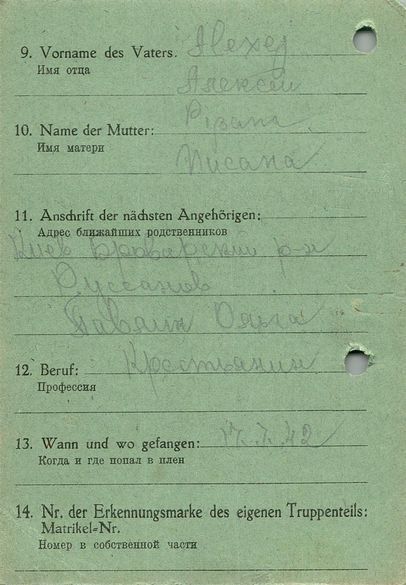 9. Vorname des Vaters. Alexej
Имя отца
Алексей
10. Name der Mutter:
Имя матери
11. Anschrift der nächsten Angehörigen:
Адрес ближайших родственников
Киев Броварский р-н
Ольга
12. Beruf: Крестьянин
Профессия
13. Wann und wo gefangen: 17.7.42
Когда и где попал в плен
14. Nr. der Erkennungsmarke des eigenen Truppenteils:
Matrikel=Nr.
Номер в собственной части